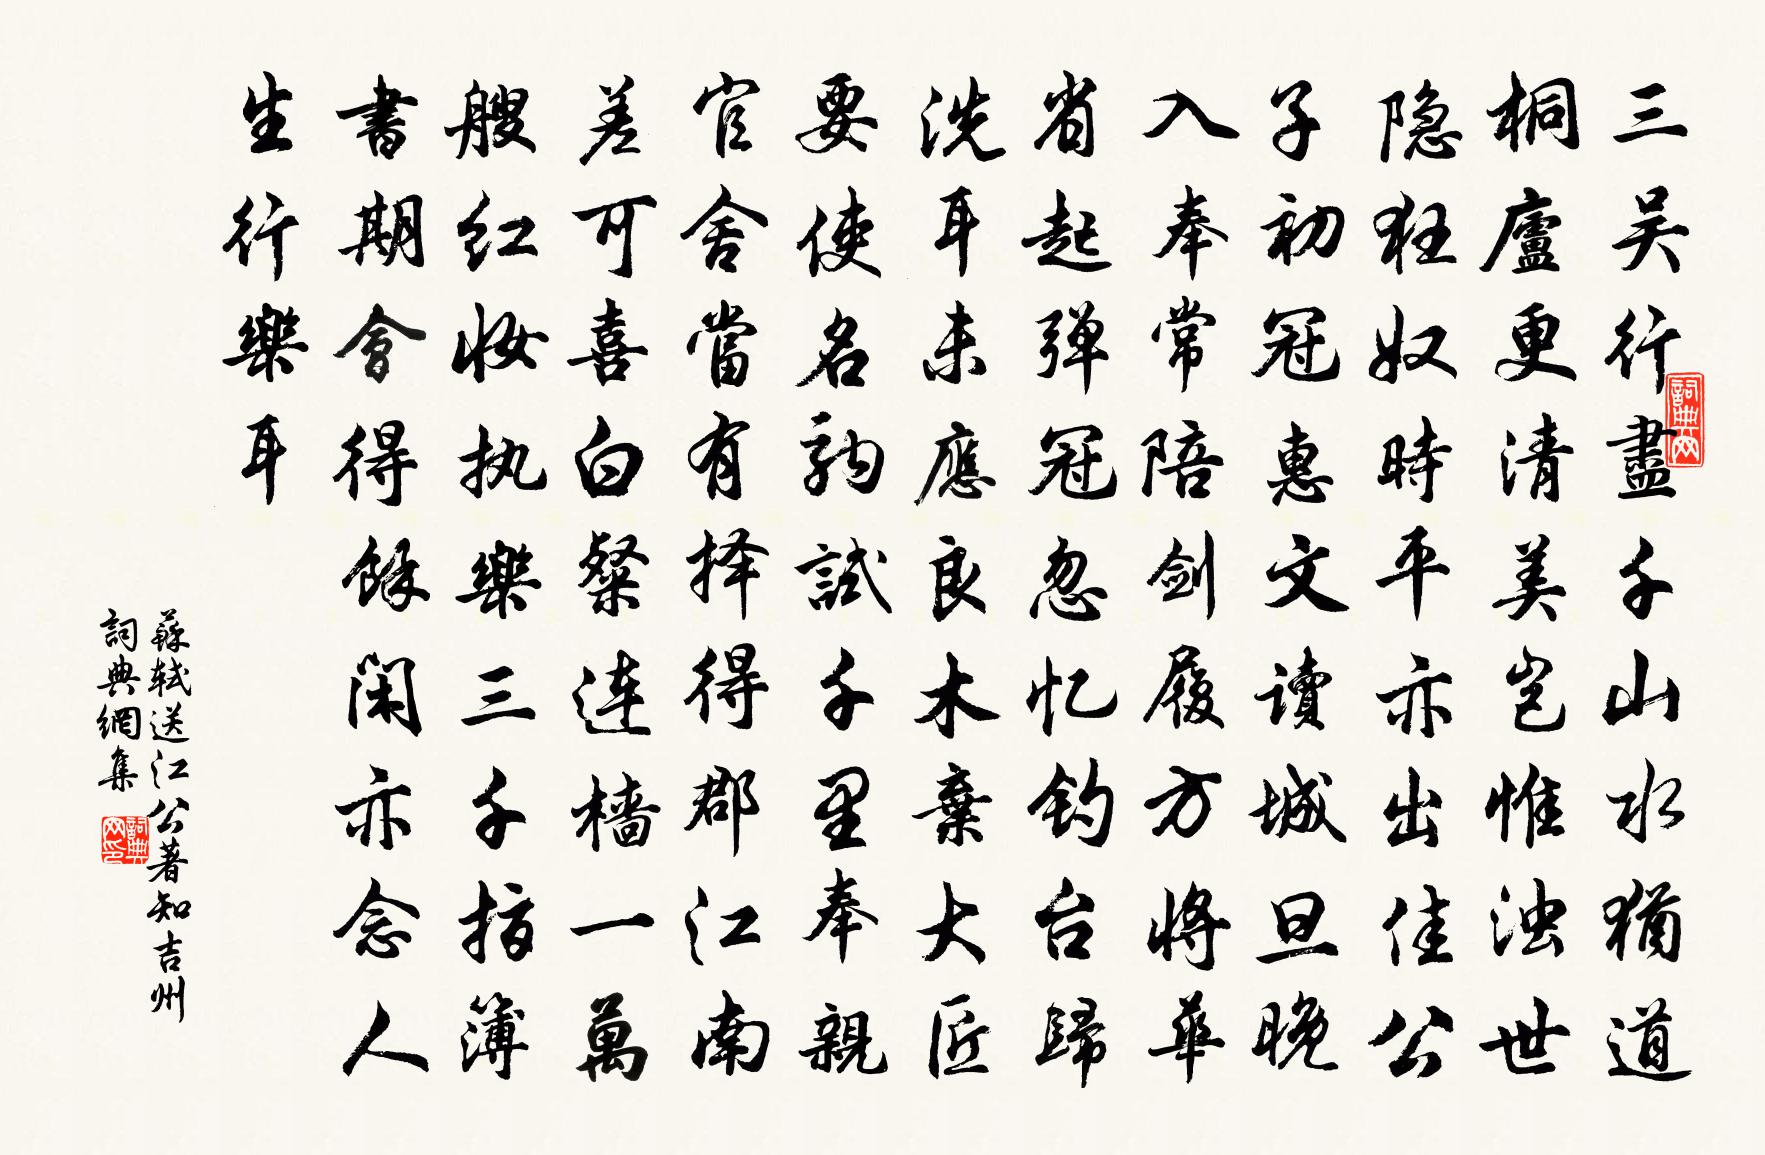 三吴行盡千山水猶道
桐廬更清美岂惟浊世
隐狂奴時平亦出佳公
子初冠惠文讀城旦晚
入奉常陪剑履方將華
省起弹冠忽忆钓台歸
洗耳未應良木棄大匠
要使名駒試千里奉親
官舍當有择得郡江南
差可喜白粲连樯一萬
艘红妆执樂三千指簿
書期會得餘闲亦念人
生行樂耳
蘇軾送江公著知吉州
詞典網集
詞典网
詞典网印